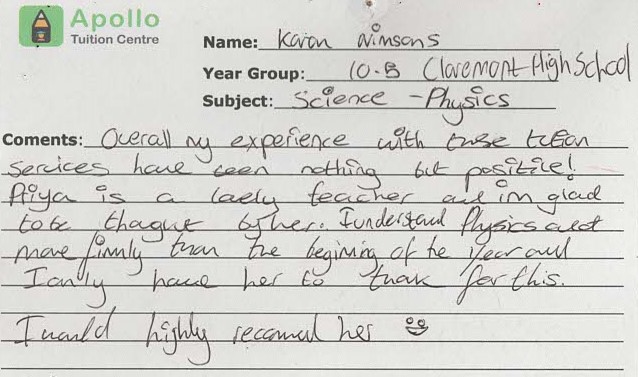 Apollo
Tuition Centre
Name: Karan Nimsons
Year Group: 10-B Claremont High School
Subject: Science - Physics
Coments: Overall my experience with these tution
services have been nothing but positive!
Priya is a lovely teacher and im glad
to be thaught by her. I understand Physics alot
more firmly than the begining of the year and
I only have her to thank for this.
I would highly recomend her